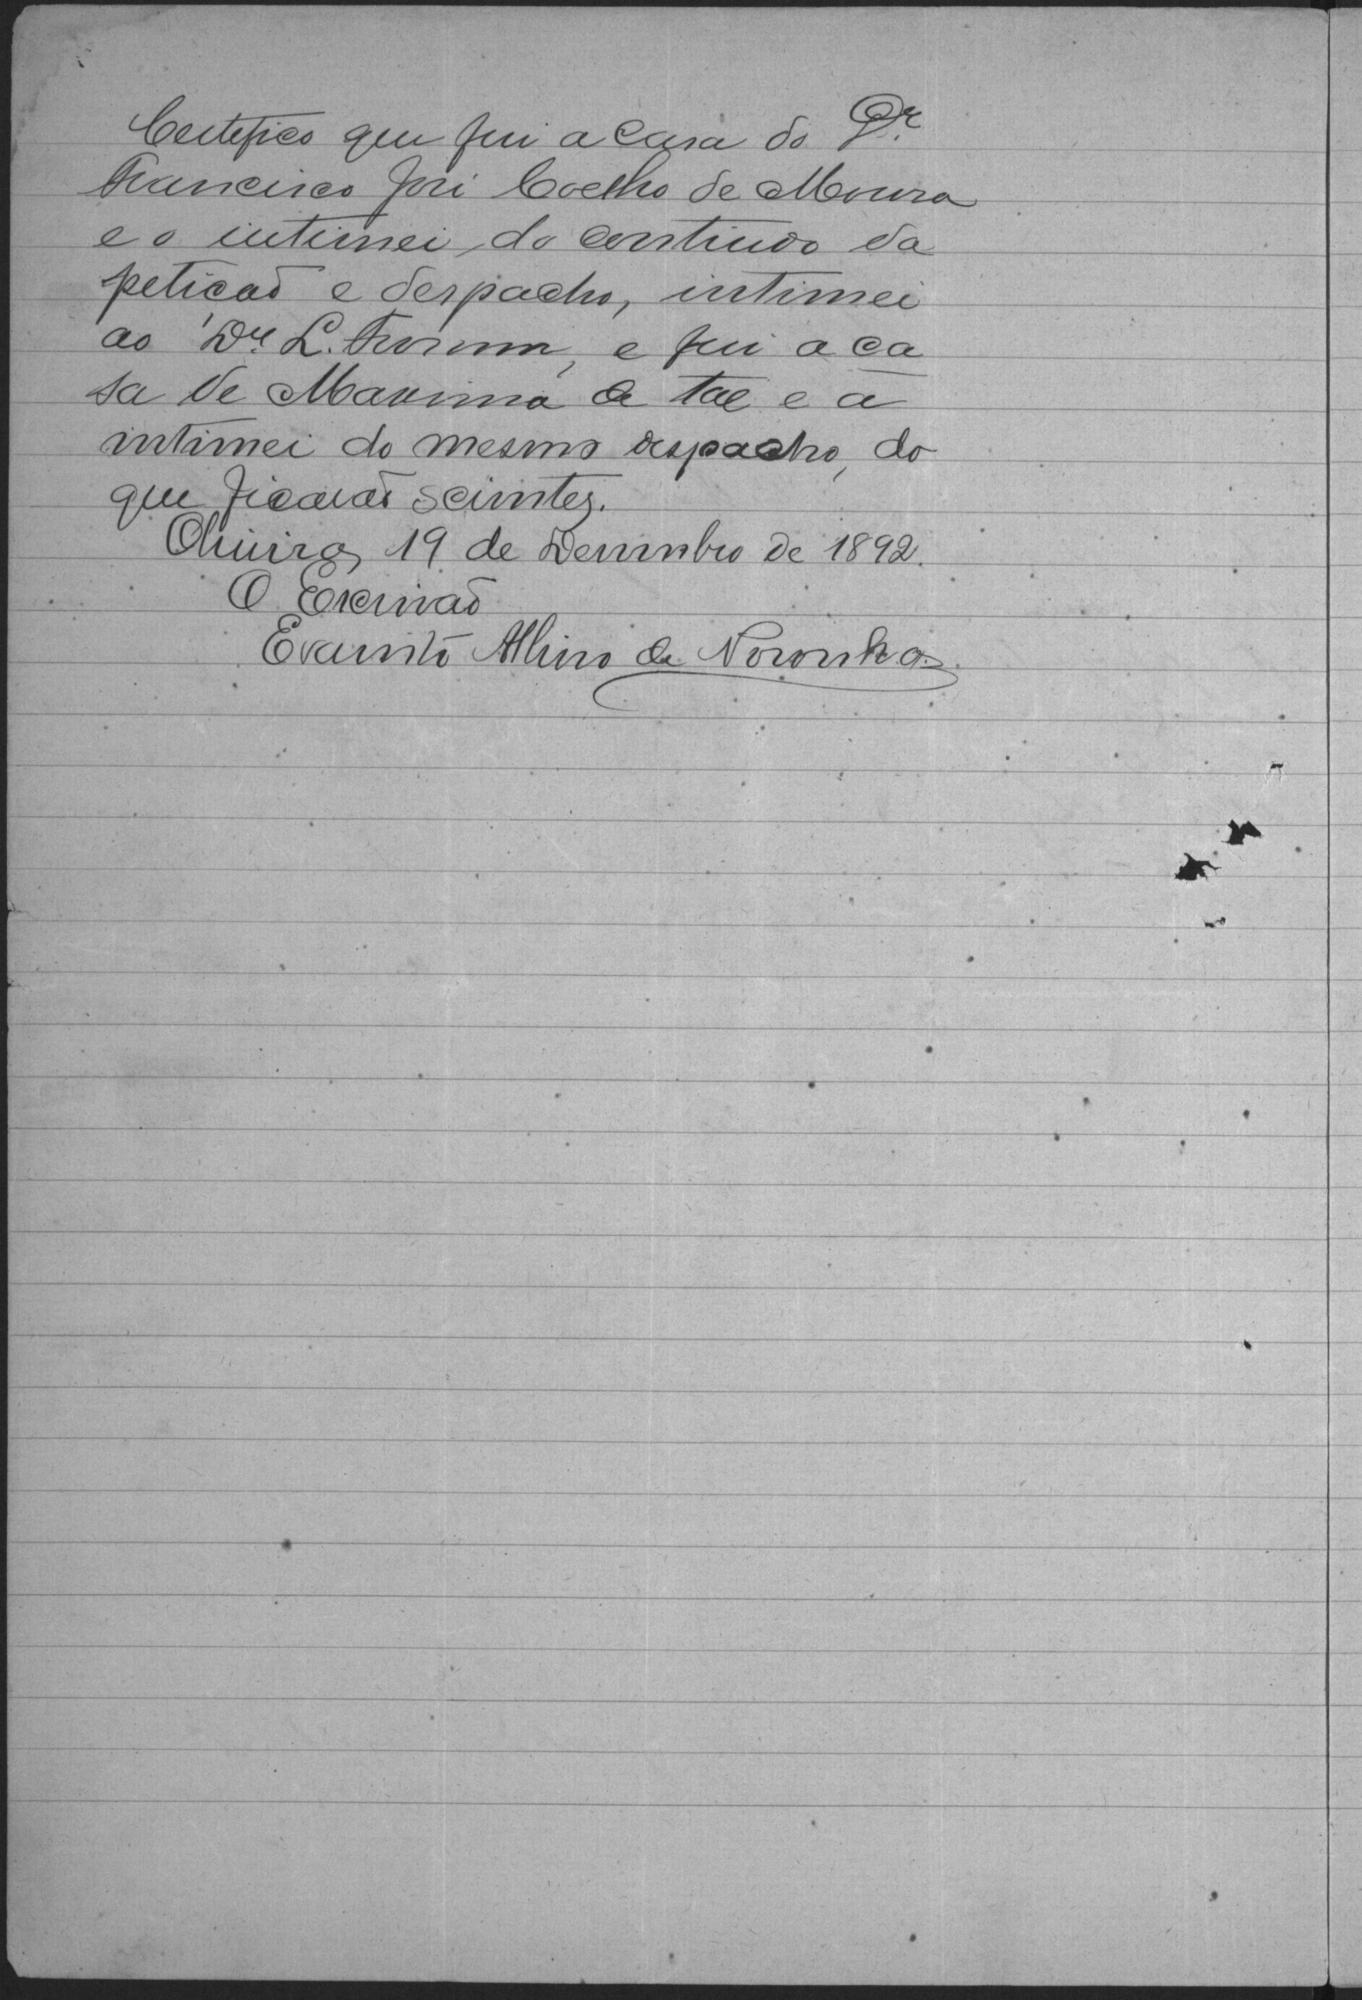 Certefico que fui a casa do Dr.
Francisco José Coelho de Moura
e o intimei do contiudo da
petiçaõ e despacho, intimei
ao Dr. L. , e fui a ca
sa de Maxima de tal e a
intimei do mesmo despacho, do
que ficaraõ scientes.
Oliveira, 19 de Desembro de 1892.
O Escrivaõ
Evaristo Albino de Noronha.